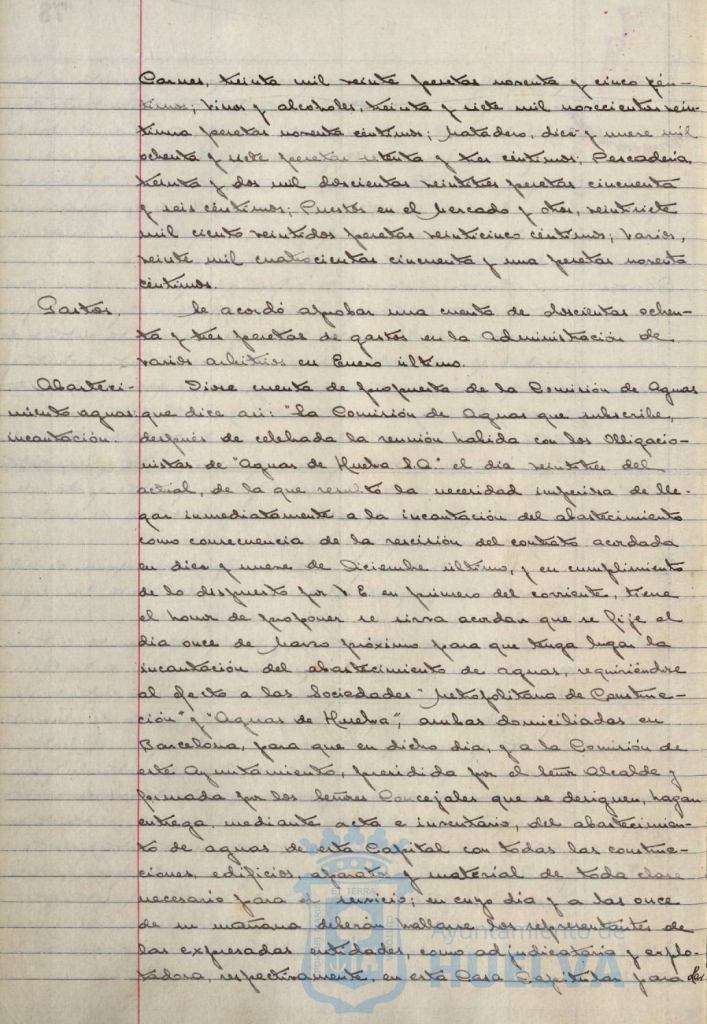 Carnes, treinta mil veinte pesetas noventa y cinco cén-
timos; vinos y alcoholes, treinta y siete mil novecientas vein-
tiuna pesetas noventa céntimos; Matadero, diez y nueve mil
ochenta y siete pesetas setenta y tres céntimos; Pescadería,
treinta y dos mil doscientas veintitres pesetas cincuenta
y seis céntimos; Puestos en el Mercado y otros, veintisiete
mil ciento veintidos pesetas veinticinco céntimos; varios,
veinte mil cuatrocientas cincuenta y una pesetas noventa
céntimos.
Gastos. Se acordó aprobar una cuenta de doscientas ochen-
ta y tres pesetas de gastos en la Administración de
varios arbitrios en Enero último.
Abasteci- Diose cuenta de propuesta de la Comisión de Aguas
miento aguas: que dice asi: "La Comisión de Aguas que subscribe,
incautación. después de celebrada la reunión habida con los Obligacio-
nistas de "Aguas de Huelva S.A." el día veintitres del
actual, de la que resultó la necesidad imperiosa de lle-
gar inmediatamente a la incautación del abastecimiento
como consecuencia de la rescisión del contrato acordada
en diez y nueve de Diciembre último, y en cumplimiento
de lo dispuesto por V. E. en primero del corriente, tiene
el honor de proponer se sirva acordar que se fije el
día once de Marzo próximo para que tenga lugar la
incautación del abastecimiento de aguas, requiriéndose
al efecto a las Sociedades "Metropolitana de Construc-
ción" y "Aguas de Huelva", ambas domiciliadas en
Barcelona, para que en dicho dia, y a la Comisión de
este Ayuntamiento, presidida por el Señor Alcalde y
formada por los Señores Concejales que se designen, hagan
entrega mediante acta e inventario, del abastecimien-
to de aguas de esta Capital con todas las construc-
ciones, edificios, aparatos y material de toda clase
necesario para el servicio; en cuyo día y a las once
de su mañana deberán hallarse los representantes de
las expresadas entidades, como adjudicataria y explo-
tadora, respectivamente, en esta Casa Capitular para
Ayuntamiento de
HUELVA